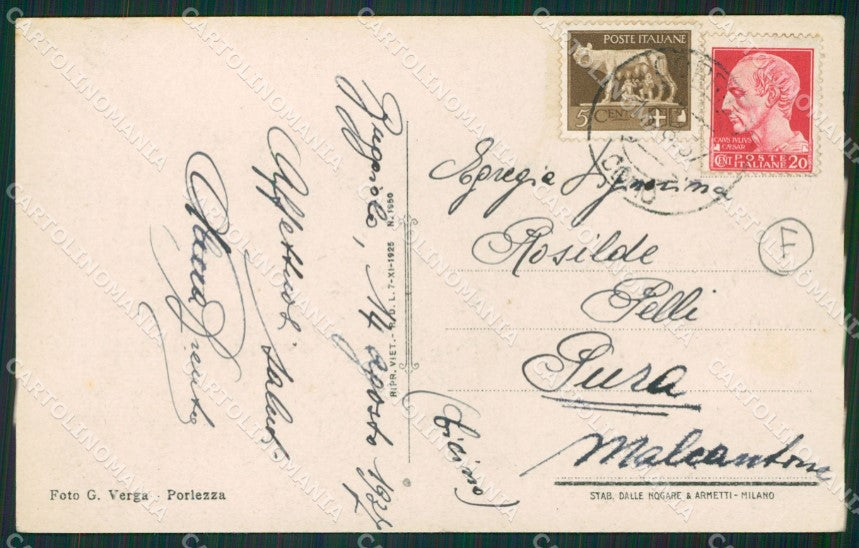 POSTE ITALIANE
5 CENT
CAIVS IVLIVS
CAESAR
CENT POSTE ITALIANE 20
COMO
14 agosto
Affettuosi saluti
RIPR. VIET. - R. D. L. 7-XI-1925 N. 1950
Egregia Signorina
Rosilde
Pelli
Pura
Malcantone
(Ticino)
Foto G. Verga - Porlezza
STAB. DALLE NOGARE & ARMETTI - MILANO
CARTOLINOMANIA